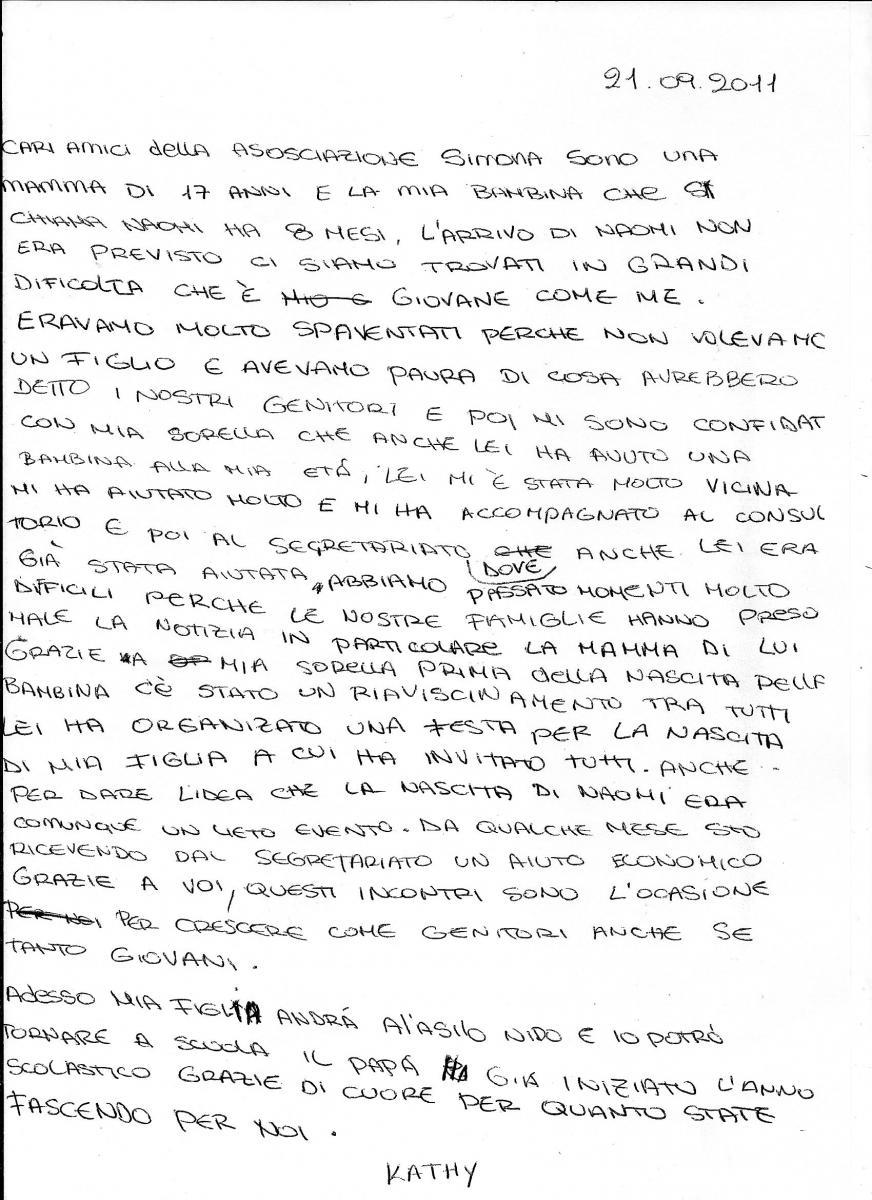 21.09.2011
CARI AMICI della ASOSCIAZIONE SIMONA SONO UNA
MAMMA DI 17 ANNI E LA MIA BAMBINA CHE SI
CHIAMA NAOMI HA 8 MESI, L'ARRIVO DI NAOMI NON
ERA PREVISTO CI SIAMO TROVATI IN GRANDI
DIFICOLTA CHE È GIOVANE COME ME.
ERAVAMO MOLTO SPAVENTATI PERCHE NON VOLEVAMO
UN FIGLIO E AVEVAMO PAURA DI COSA AVREBBERO
DETTO I NOSTRI GENITORI E POI MI SONO CONFIDAT
CON MIA SORELLA CHE ANCHE LEI HA AVUTO UNA
BAMBINA ALLA MIA ETÁ, LEI MI È STATA MOLTO VICINA
MI HA AIUTATO MOLTO E MI HA ACCOMPAGNATO AL CONSUL
TORIO E POI AL SEGRETARIATO CHE ANCHE LEI ERA
DOVE
GIÀ STATA AIUTATA, ABBIAMO PASSATO MOMENTI MOLTO
DIFFICILI PERCHE LE NOSTRE FAMIGLIE HANNO PRESO
MALE LA NOTIZIA IN PARTICOLARE LA MAMMA DI LUI
GRAZIE A MIA SORELLA PRIMA della NASCITA DELLA
BAMBINA C'È STATO UN RIAVISCINAMENTO TRA TUTTI
LEI HA ORGANIZATO UNA FESTA PER LA NASCITA
DI MIA FIGLIA A CUI HA INVITATO TUTTI. ANCHE
PER DARE L'IDEA CHE LA NASCITA DI NAOMI ERA
COMUNQUE UN LIETO EVENTO. DA QUALCHE MESE STO
RICEVENDO DAL SEGRETARIATO UN AIUTO ECONOMICO
GRAZIE A VOI, QUESTI INCONTRI SONO L'OCASIONE
PER NOI PER CRESCERE COME GENITORI ANCHE SE
TANTO GIOVANI.
ADESSO MIA FIGLIA ANDRÁ Al'ASILO NIDO E IO POTRÓ
TORNARE A SCUOLA IL PAPÁ HA GIÁ INIZIATO L'ANNO
SCOLASTICO GRAZIE DI CUORE PER QUANTO STATE
FASCENDO PER NOI.
KATHY